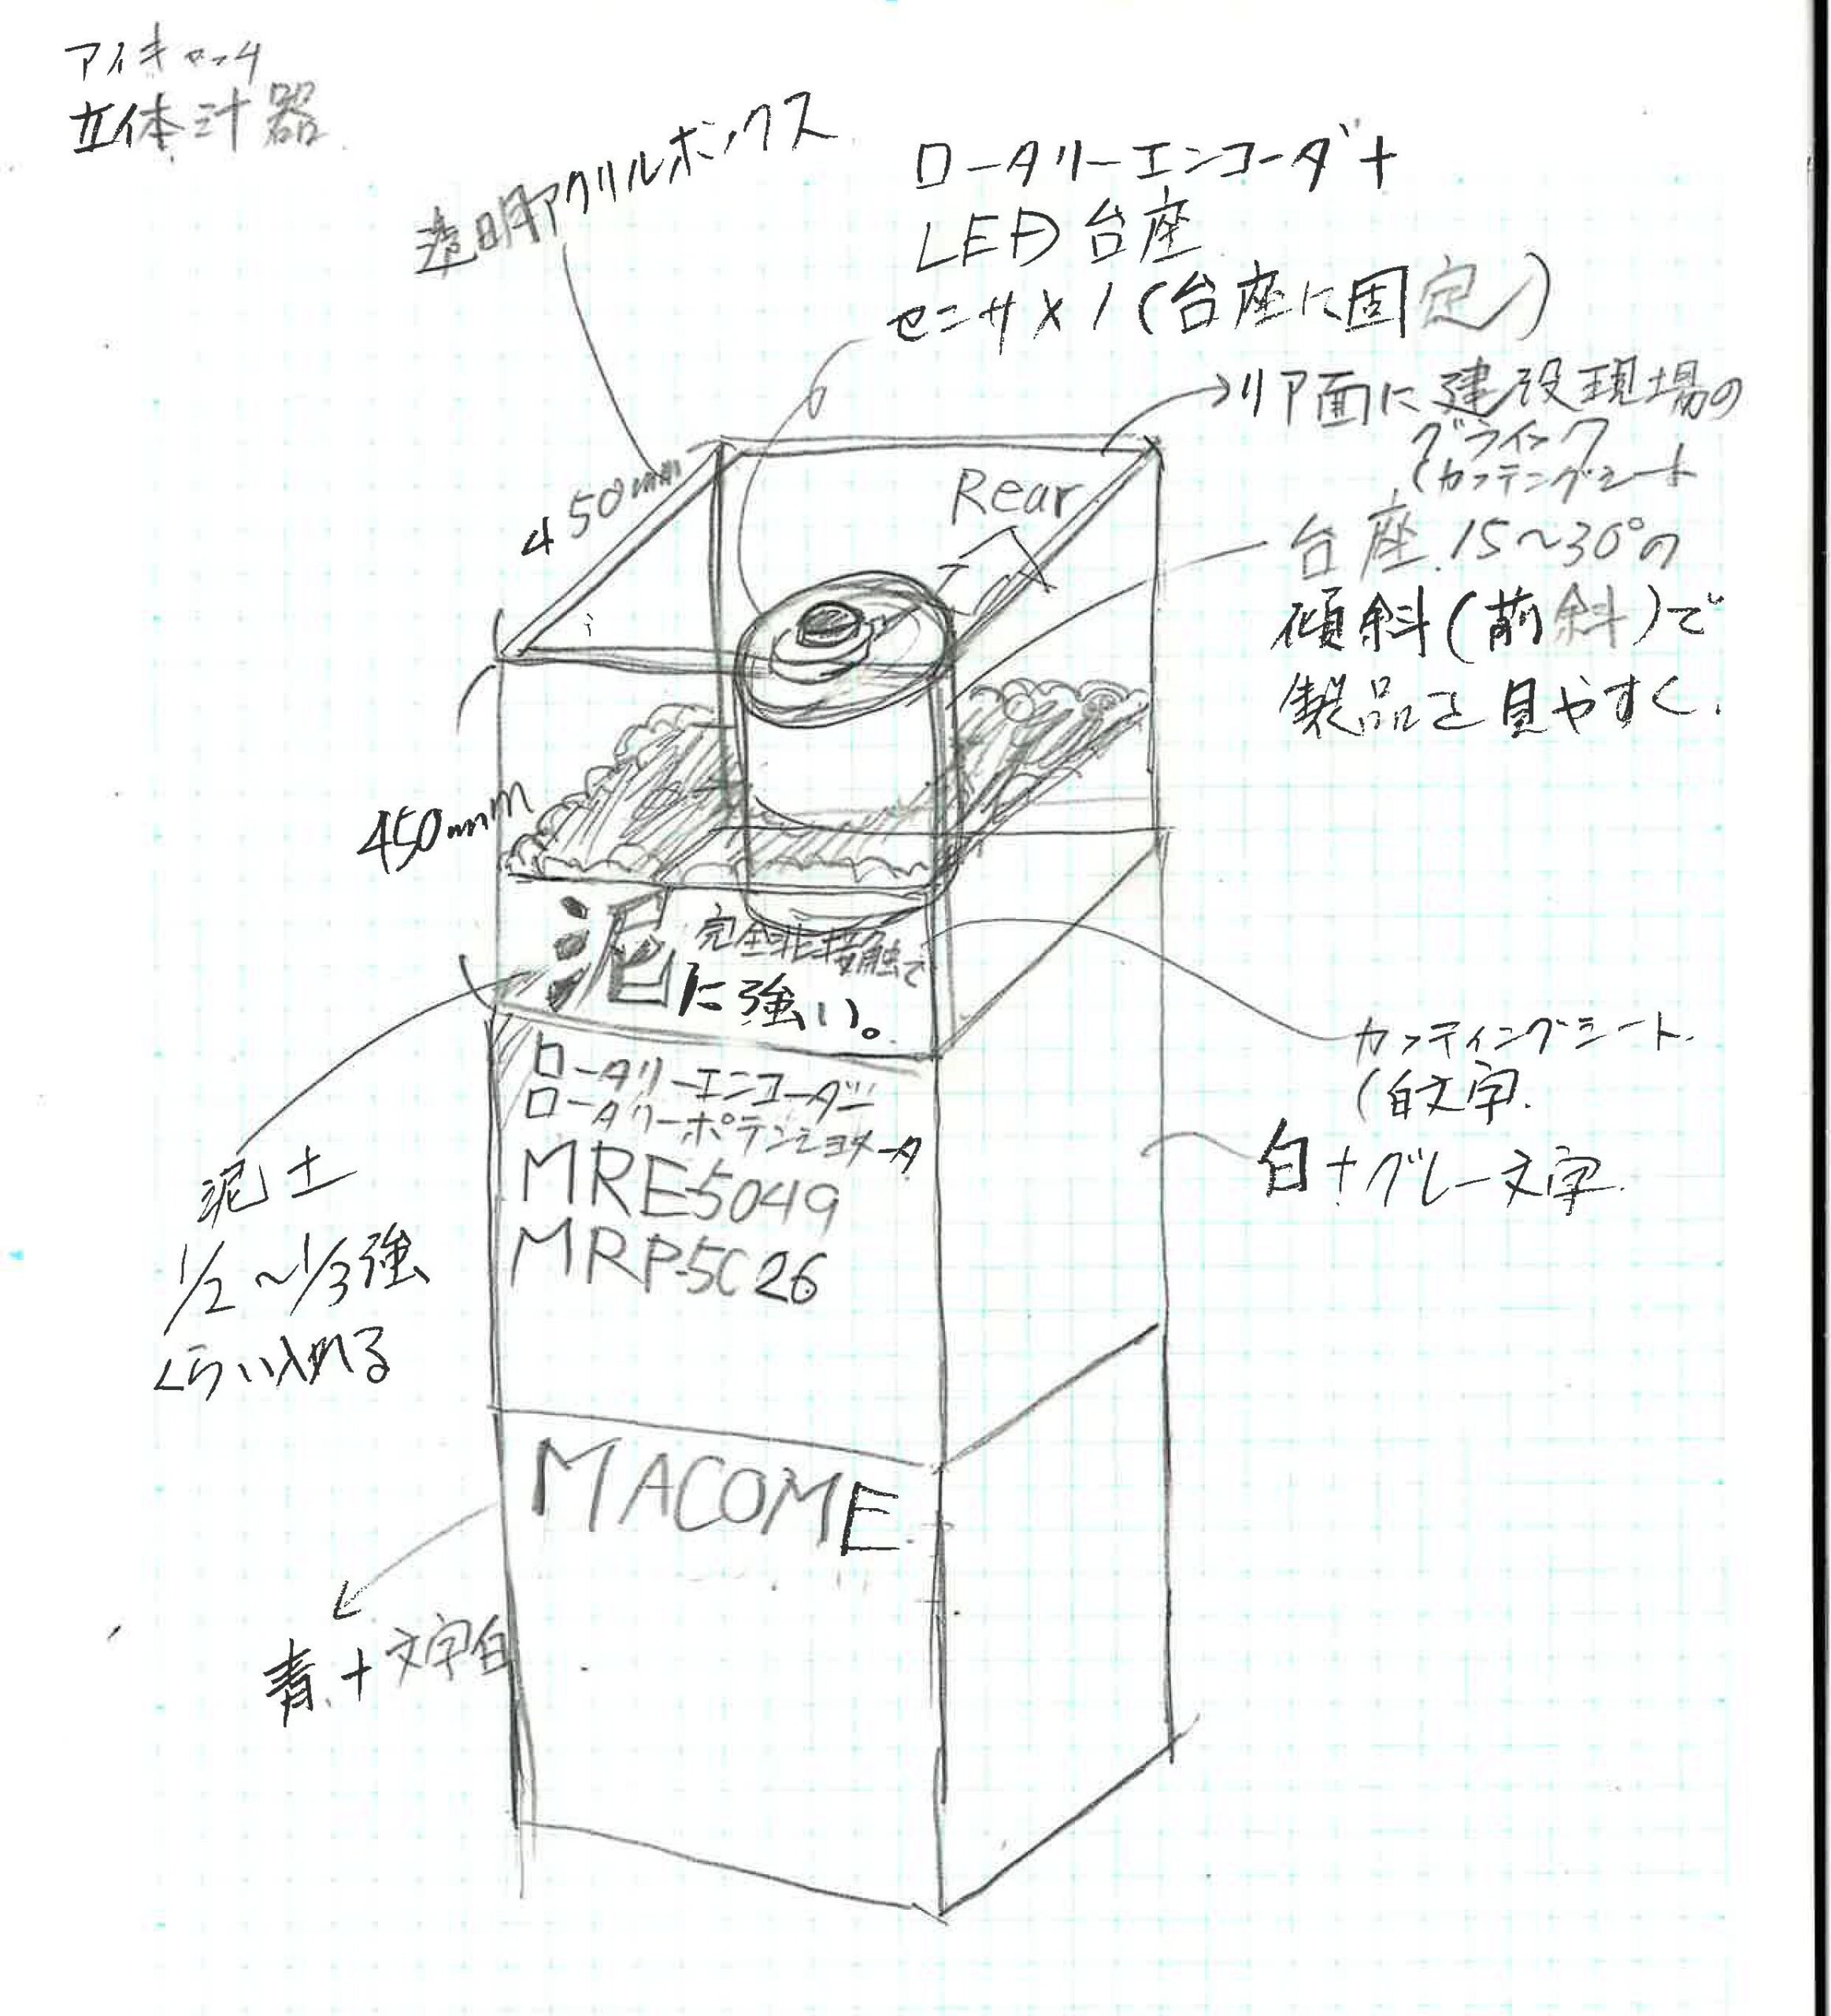 アイキャッチ
立体什器
透明アクリルボックス
ロータリーエンコーダ+
LED台座
センサ×1(台座に固定)
→リア面に建設現場の
グラフィック
(カッティングシート
450mm
Rear
台座.15~30°の
傾斜(前斜)で
製品を見やすく.
450mm
泥 完全非接触で
に強い。
カッティングシート.
(白文字.
ロータリーエンコーダ
ロータリーポテンショメータ
MRE-5049
MRP-5C26
白+グレー文字.
泥土
1/2~1/3強
くらい入れる
MACOME
青.+文字白